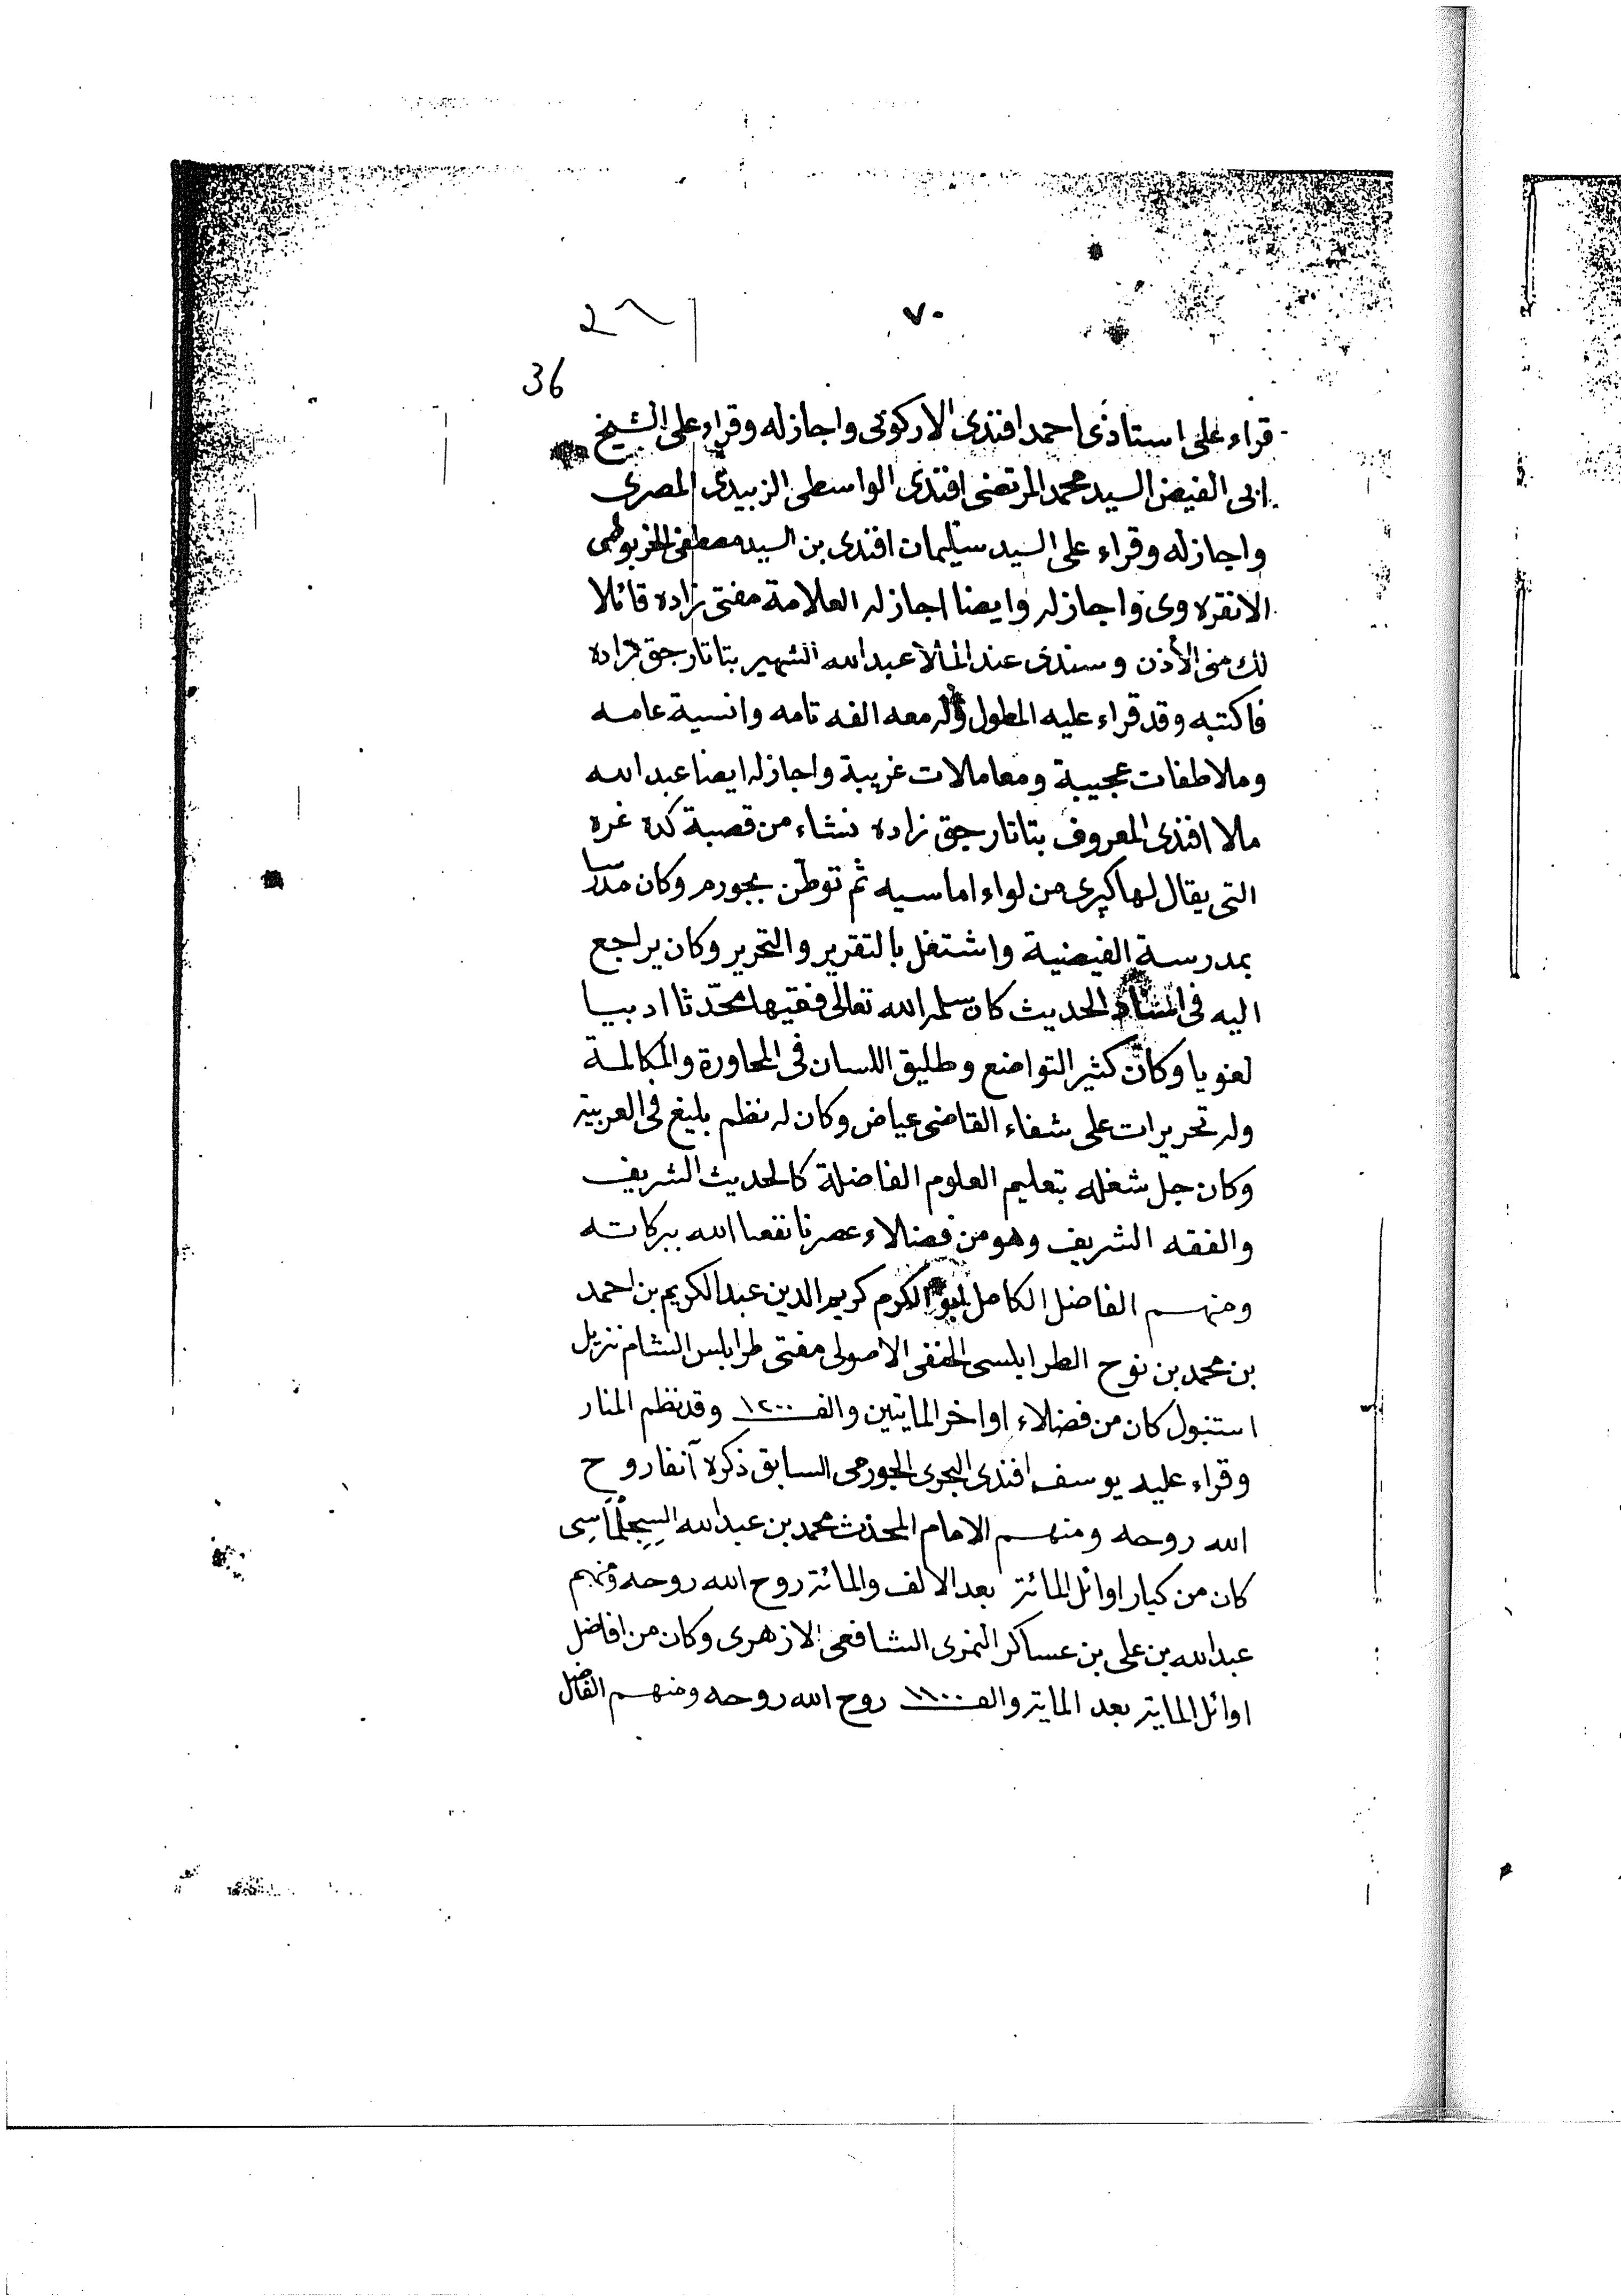 ٧٠
36
قراء على استاذى احمد افندى الاركونى واجازله وقراء على الشيخ
ابى الفيض السيد محمد المرتضى افندى الواسطى الزبيدى المصرى
واجازله وقراء على السيد سليمان افندى بن السيد مصطفى الخربوطى
الانقره وى واجازله وايضا اجازله العلامة مفتى زاده قائلا
لك منى الأذن وسندى عند المنلا عبد الله الشهير بتاتارجق زاده
فاكتبه وقد قراء عليه المطول وله معه الفه تامه وانسية عامه
وملاطفات عجيبة ومعاملات غريبة واجازله ايضا عبد الله
ملا افندى المعروف بتاتارجق زاده نشاء من قصبة كده غره
التى يقال لها كپرى من لواء اماسيه ثم توطن بجورم وكان مدرسا
بمدرسة الفيضية واشتغل بالتقرير والتحرير وكان يراجع
اليه فى الحديث كان سلمه الله تعالى فقيها محدّثا اديبا
لغويا وكان كثير التواضع وطليق اللسان فى المحاورة والمكالمة
وله تحريرات على شفاء القاضى عياض وكان له نظم بليغ فى العربية
وكان جل شغله بتعليم العلوم الفاضلة كالحديث الشريف
والفقه الشريف وهو من فضلاء عصرنا نفعنا الله ببركاته
ومنهم الفاضل الكامل ابو الكرم كريم الدين عبد الكريم بن احمد
بن محمد بن نوح الطرابلسى الحنفى الاصولى مفتى طرابلس الشام نزيل
استنبول كان من فضلاء اواخر المايتين والف ١٢٠٠ وقد نظم المنار
وقراء عليه يوسف افندى البحرى الجورمى السابق ذكره آنفا روح
الله روحه ومنهم الامام المحدث محمد بن عبد الله السِجِلْمَاسِى
كان من كبار اوائل المائة بعد الالف والمائة روح الله روحه ومنهم
عبد الله بن على بن عساكر النمرى الشافعى الازهرى وكان من افاضل
اوائل الماية بعد الماية والف ١١٠٠ روح الله روحه ومنهم الفاضل